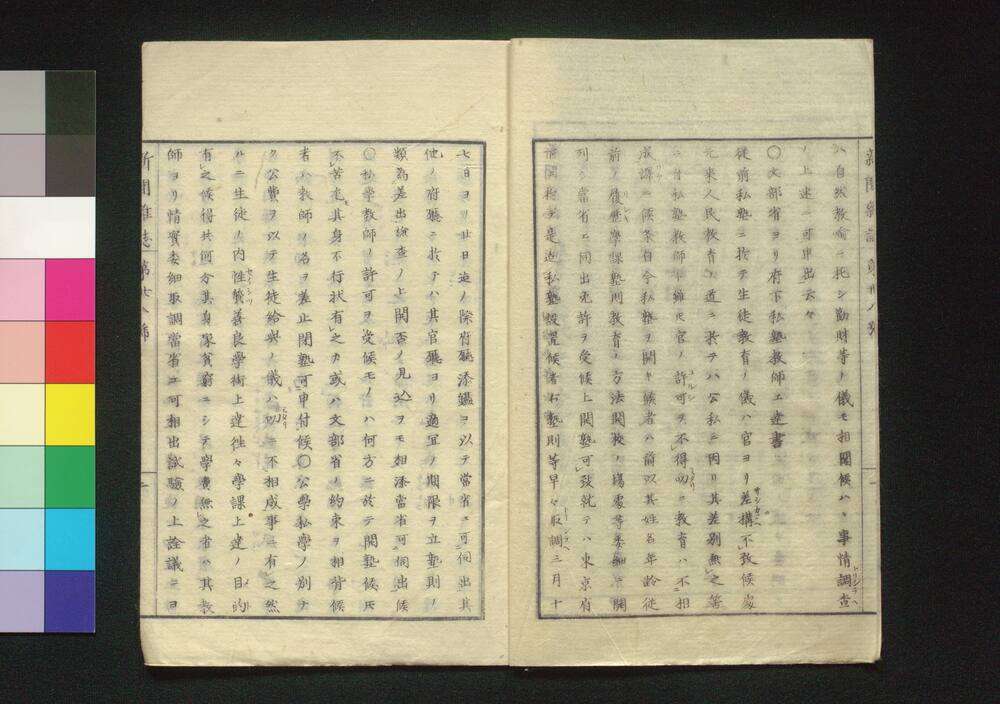 ハ自然教喩ニ托シ勧財等ノ儀モ相聞候ハヽ事情調査
ノ上速ニ可申出云々
○文部省ヨリ府下私塾教師エ達書
従前私塾ニ於テ生徒教育ノ儀ハ官ヨリ差構不致候処
元来人民教育ノ道ニ於テハ公私ニ因リ其差別無之等
ニ付私塾教師ト雖モ官ノ許可ヲ不得叨ニ教育ハ不相
成譯ニ候条自今私塾ヲ開キ候者ハ前以其姓名年齢従
前ノ履歴學課塾則教育ノ方法開校ノ場處等委細ニ開
列シ當省エ同出免許ヲ受候上開塾可致就テハ東京府
管轄府下是迄私塾設置候者右塾則等早々取調三月十
七日ヨリ廿日迄ノ際府廳添鑑ヲ以テ當省エ可伺出其
他ノ府廳ニ於テハ其官廳ヨリ適宜ノ期限ヲ立塾則ノ
類為差出検査ノ上開否ノ見込ヲモ相添當省可伺出候
○私學教師ノ許可ヲ受候モノハ何方ニ於テ開塾候共
不苦尤其身不行状有之カ或ハ文部省ノ約束ヲ相背候
者ハ教師ノ名ヲ差止閉塾可申付候○公學私學ノ別ナ
ク公費ヲ以テ生徒給與ノ儀ハ叨ニ不相成事ニ有之然
ルニ生徒ノ内性質善良學術上達往々學課上達ノ目的
有之候得共何分其身家貧窮ニシテ學費無之者ハ其教
師ヨリ情實委細取調當省エ可相出試驗ノ上詮議ニヨ
新聞雑誌第廿八號